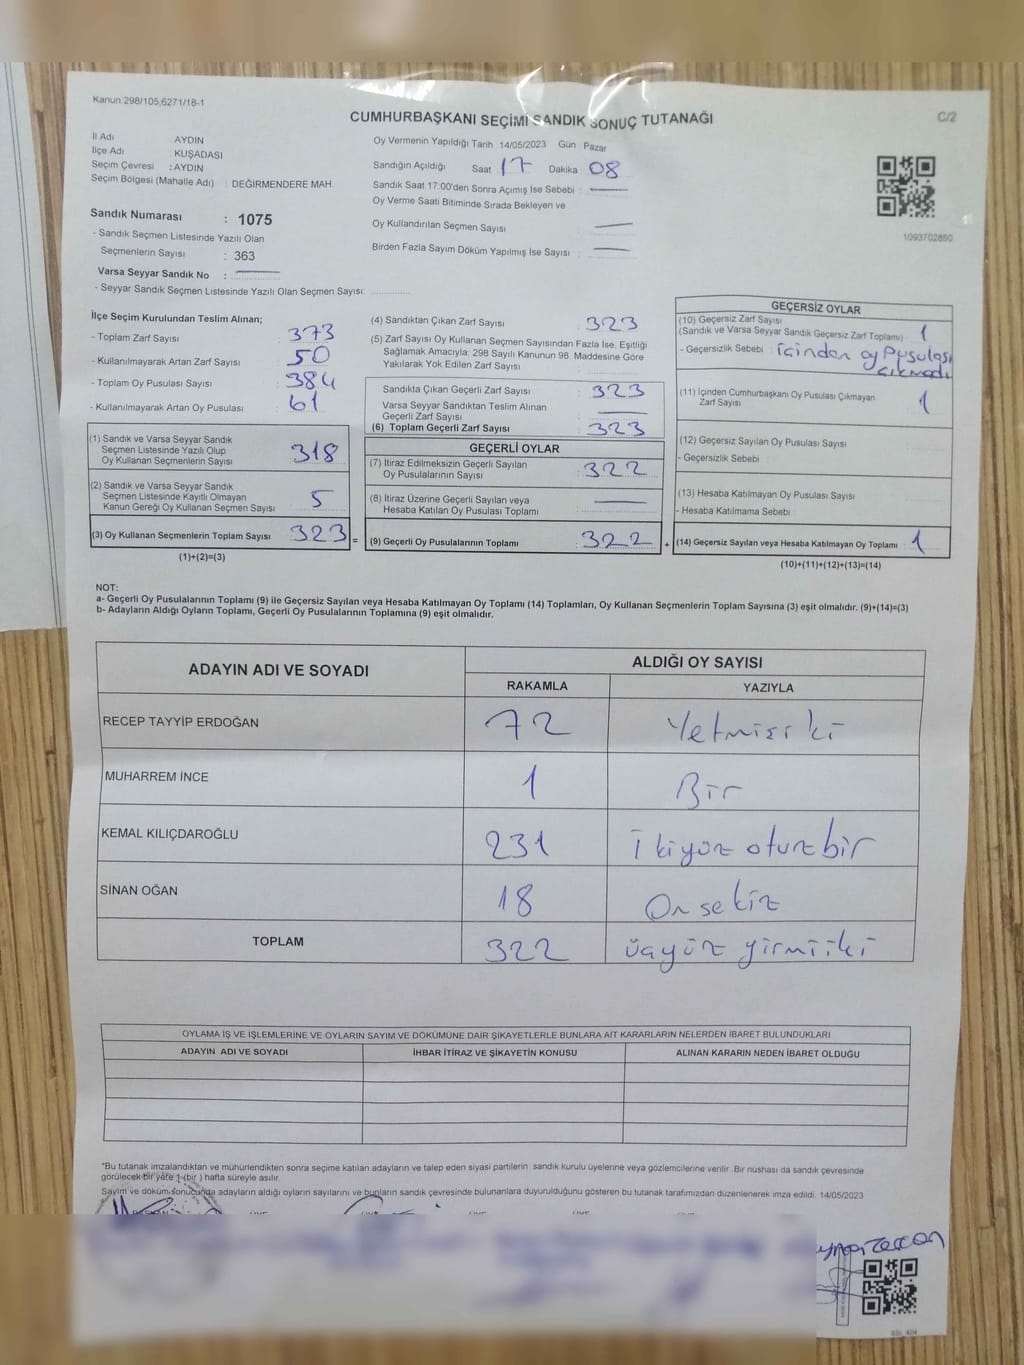 Kanun:298/105,6271/18-1
CUMHURBAŞKANI SEÇİMİ SANDIK SONUÇ TUTANAĞI
C/2
İl Adı AYDIN
İlçe Adı : KUŞADASI
Seçim Çevresi : AYDIN
Seçim Bölgesi (Mahalle Adı) : DEĞİRMENDERE MAH.
Oy Vermenin Yapıldığı Tarih 14/05/2023 Gün Pazar
Sandığın Açıldığı Saat 17 Dakika 08
Sandık Saat 17:00'den Sonra Açımış İse Sebebi :
Oy Verme Saati Bitiminde Sırada Bekleyen ve
Oy Kullandırılan Seçmen Sayısı
Birden Fazla Sayım Döküm Yapılmış İse Sayısı :
1093702850
Sandık Numarası : 1075
- Sandık Seçmen Listesinde Yazılı Olan
Seçmenlerin Sayısı : 363
Varsa Seyyar Sandık No :
- Seyyar Sandık Seçmen Listesinde Yazılı Olan Seçmen Sayısı:
İlçe Seçim Kurulundan Teslim Alınan;
- Toplam Zarf Sayısı : 373
- Kullanılmayarak Artan Zarf Sayısı : 50
- Toplam Oy Pusulası Sayısı : 384
- Kullanılmayarak Artan Oy Pusulası : 61
(1) Sandık ve Varsa Seyyar Sandık
Seçmen Listesinde Yazılı Olup
Oy Kullanan Seçmenlerin Sayısı 318
(2) Sandık ve Varsa Seyyar Sandık
Seçmen Listesinde Kayıtlı Olmayan
Kanun Gereği Oy Kullanan Seçmen Sayısı 5
(3) Oy Kullanan Seçmenlerin Toplam Sayısı 323 =
(1)+(2)=(3)
(4) Sandıktan Çıkan Zarf Sayısı : 323
(5) Zarf Sayısı Oy Kullanan Seçmen Sayısından Fazla İse, Eşitliği
Sağlamak Amacıyla; 298 Sayılı Kanunun 98. Maddesine Göre
Yakılarak Yok Edilen Zarf Sayısı
Sandıkta Çıkan Geçerli Zarf Sayısı : 323
Varsa Seyyar Sandıktan Teslim Alınan
Geçerli Zarf Sayısı
(6) Toplam Geçerli Zarf Sayısı : 323
GEÇERLİ OYLAR
(7) İtiraz Edilmeksizin Geçerli Sayılan
Oy Pusulalarının Sayısı : 322
(8) İtiraz Üzerine Geçerli Sayılan veya
Hesaba Katılan Oy Pusulası Toplamı
(9) Geçerli Oy Pusulalarının Toplamı : 322 +
GEÇERSİZ OYLAR
(10) Geçersiz Zarf Sayısı
(Sandık ve Varsa Seyyar Sandık Geçersiz Zarf Toplamı) : 1
- Geçersizlik Sebebi : içinden oy pusulası
çıkmadı
(11) İçinden Cumhurbaşkanı Oy Pusulası Çıkmayan
Zarf Sayısı 1
(12) Geçersiz Sayılan Oy Pusulası Sayısı
- Geçersizlik Sebebi :
(13) Hesaba Katılmayan Oy Pusulası Sayısı
- Hesaba Katılmama Sebebi :
(14) Geçersiz Sayılan veya Hesaba Katılmayan Oy Toplamı : 1
(10)+(11)+(12)+(13)=(14)
NOT:
a- Geçerli Oy Pusulalarının Toplamı (9) ile Geçersiz Sayılan veya Hesaba Katılmayan Oy Toplamı (14) Toplamları, Oy Kullanan Seçmenlerin Toplam Sayısına (3) eşit olmalıdır. (9)+(14)=(3)
b- Adayların Aldığı Oyların Toplamı, Geçerli Oy Pusulalarının Toplamına (9) eşit olmalıdır.
ADAYIN ADI VE SOYADI
ALDIĞI OY SAYISI
RAKAMLA YAZIYLA
RECEP TAYYİP ERDOĞAN 72 Yetmişiki
MUHARREM İNCE 1 Bir
KEMAL KILIÇDAROĞLU 231 ikiyüz otuzbir
SİNAN OĞAN 18 Onsekiz
TOPLAM 322 üçyüz yirmiiki
OYLAMA İŞ VE İŞLEMLERİNE VE OYLARIN SAYIM VE DÖKÜMÜNE DAİR ŞİKAYETLERLE BUNLARA AİT KARARLARIN NELERDEN İBARET BULUNDUKLARI
ADAYIN ADI VE SOYADI İHBAR İTİRAZ VE ŞİKAYETİN KONUSU ALINAN KARARIN NEDEN İBARET OLDUĞU
*Bu tutanak imzalandıktan ve mühürlendikten sonra seçime katılan adayların ve talep eden siyasi partilerin sandık kurulu üyelerine veya gözlemcilerine verilir. Bir nüshası da sandık çevresinde
görülecek bir yere 1 (bir ) hafta süreyle asılır.
Sayım ve döküm sonucunda adayların aldığı oyların sayılarını ve bunların sandık çevresinde bulunanlara duyurulduğunu gösteren bu tutanak tarafımızdan düzenlenerek imza edildi. 14/05/2023